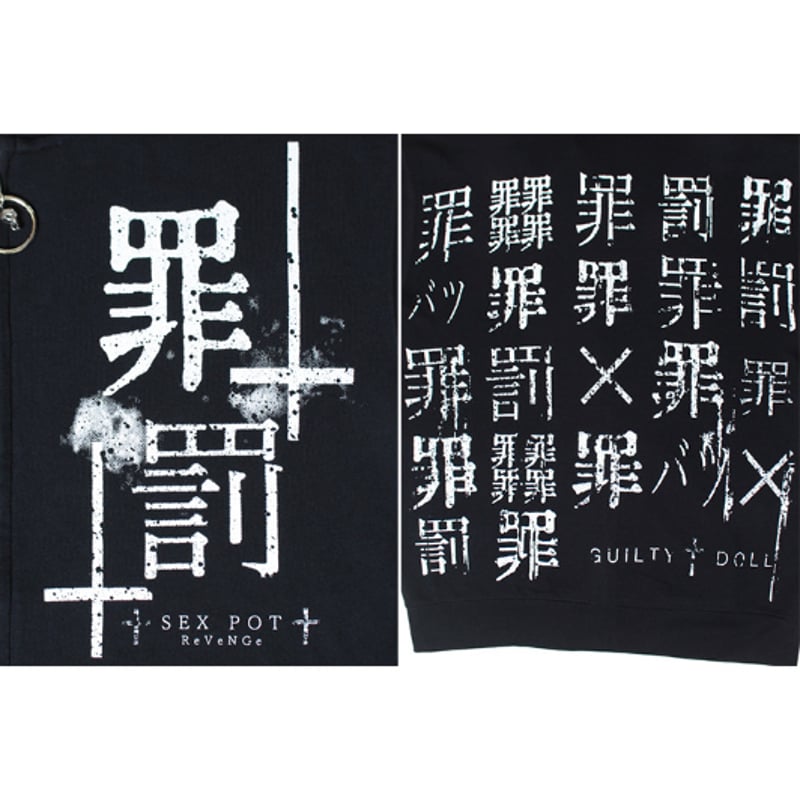 罪
罰
† SEX POT †
ReVeNGe
罪 罪罪罪罪 罪 罰 罪
バツ 罪 罪 罪 罰
罪 罰 × 罪 罪
罪 罪罪罪罪 罪 バツ ×
罰 罪 GUILTY † DOLL